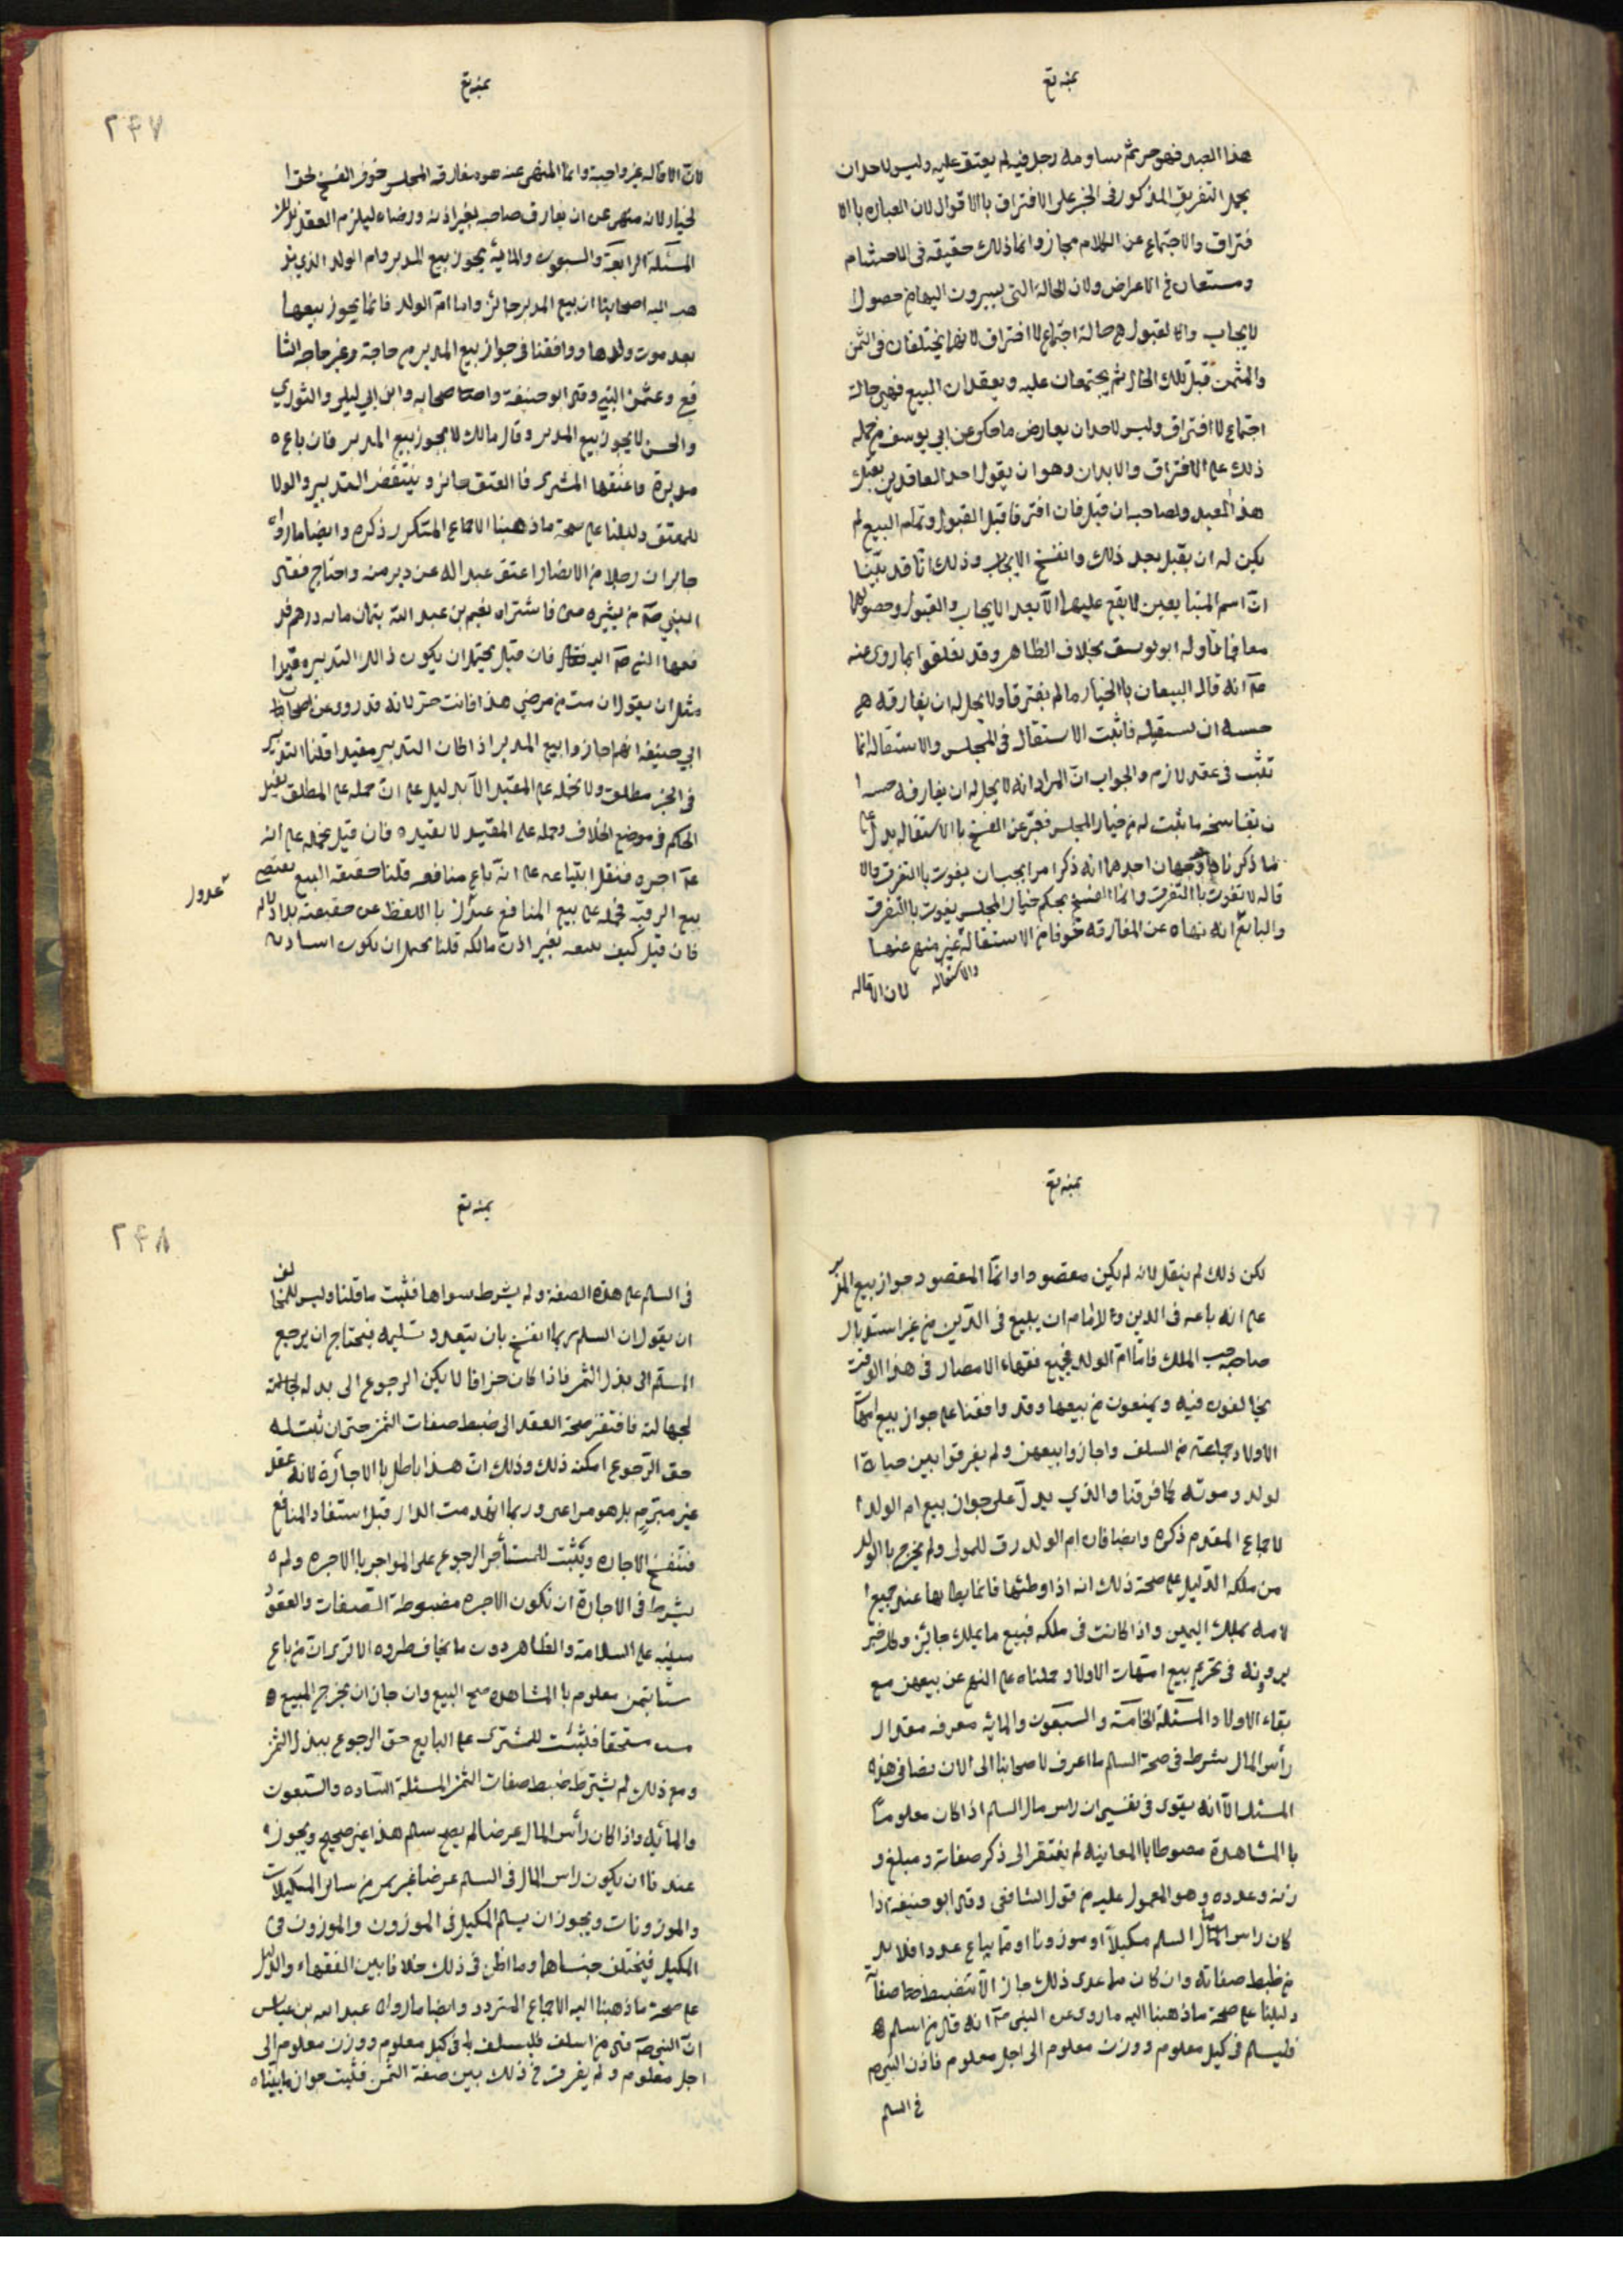 هذا العبد فهو حر ثم ساومه رجل فيه لم يعتق عليه وليس لاحد ان
يحمل التفريق المذكور في الخبر على الافتراق بالاقوال لان العباره بالا
فتراق والاجتماع عن الكلام مجاز وانما ذلك حقيقه في الاجسام
ومستعار في الاعراض ولان الحالة التي يسيرون اليها من حصول
لايجاب والقبول هي حالة اجتماع لا افتراق لانهما يختلفان في الثمن
والمثمن قبل تلك الحال ثم يجتمعان عليه ويعقدان البيع فهي حالة
اجتماع لا افتراق وليس لاحد ان يعارض ما حكي عن ابي يوسف من حمله
ذلك على الافتراق والابدان وهو ان يقول احد العاقدين بعتك
هذا العبد ولصاحبه ان قبل فان افترقا قبل القبول وتمام البيع لم
يكن له ان يقبل بعد ذلك وانفسخ الايجاب وذلك انا قد بينا
ان اسم المتبايعين لا يقع عليهما الا بعد الايجاب والقبول وحصولهما
معا فما تأوله ابو يوسف بخلاف الظاهر وقد تعلقوا بما روى عنه
انه قال البيعان بالخيار ما لم يفترقا ولا يحل له ان يفارقه
ان يستقيله فاثبت الاستقال في المجلس والاستقاله انما
تثبت في عقد لازم والجواب ان المراد انه لا يحل له ان يفارقه
ن يفاسخه ما ثبت له من خيار المجلس فعبر عن الفسخ بالاستقاله يدل على
ما ذكرناه وجهان احدهما انه ذكر امرا يجب ان يفوت بالتفرق والا
قاله لا تفوت بالتفرق وانما الفسخ بحكم خيار المجلس يفوت بالتفرق
والثاني انه نهاه عن المفارقه خوفا من الاستقالة غير منهى عنها
والاستقاله
لان الاقاله
۲۴۷
لان الاقاله غير واجبة وانما المنهى عنه هو مفارقه المجلس خوف الفسخ لحق ا
لخيار لانه منهى عن ان يفارق صاحبه بغير اذنه ورضاه ليلزم العقد بذلك
المسئلة الرابعة والسبعون والمائة يجوز بيع المدبر وام الولد الذي يذ
هب اليه اصحابنا ان بيع المدبر جائز واما ام الولد فانما يجوز بيعها
بعد موت ولدها ووافقنا في جواز بيع المدبر من حاجة وغير حاجه الشا
فعي وعثمن البتي وقال ابو حنيفة واصحابه وابن ابي ليلى والثوري
والحسن لا يجوز بيع المدبر وقال مالك لا يجوز بيع المدبر فان باع
مدبرة واعتقها المشترى فالعتق جائز وينتقض التدبير والولا
للمعتق ودليلنا على صحة ما ذهبنا الاجماع المتكرر ذكره وايضا ما رواه
جابر ان رجلا من الانصار اعتق عبدا له عن دبر منه واحتاج فقال
النبي من يشتريه منى فاشتراه نعيم بن عبد الله بثمان مايه درهم فد
فعها النبي اليه فان قيل يحتمل ان يكون ذلك التدبير مقيدا
مثل ان يقول ان مت من مرضي هذا فانت حر لانه قد روى عن اصحاب
ابي حنيفه انهم اجازوا بيع المدبر اذا كان التدبير مقيدا قلنا التدبير
في الخبر مطلق ولا نحمله على المقيد الا بدليل على ان حمله على المطلق يفيد
الحكم في موضع الخلاف وحمله على المقيد لا يفيده فان قيل نحمله على انه
اجره فنقل ابتياعه على انه باع منافعه قلنا حقيقه البيع يقتضى
بيع الرقبة فحمله على بيع المنافع عدول باللفظ عن حقيقته بلا دلاله
فان قيل كيف بيعه بغير اذن مالكه قلنا يحتمل ان يكون
عدول
لكن ذلك لم ينقل لانه لم يكن مقصودا وانما المقصود جواز بيع المدبر
على انه باعه في الدين وللامام ان يبيع في الدين من غير استيذان
صاحب الملك فاما ام الولد فجميع فقهاء الامصار في هذا الوقت
يخالفون فيه ويمنعون من بيعها وقد وافقنا على جواز بيع امهات
الاولاد جماعة من السلف واجازوا بيعهن ولم يفرقوا بين حياة ا
لولد وموته كما فرقنا والذي يدل على جواز بيع ام الولد ا
لاجماع المقدم ذكره وايضا فان ام الولد رق للمولى ولم يخرج بالولد
من ملكه الدليل على صحة ذلك انه اذا وطئها فانما يطاها عند جميع ا
لامه بملك اليمين واذا كانت في ملكه فبيع ما يملك جائز وكل خبر
يروونه في تحريم بيع امهات الاولاد حملناه على النهى عن بيعهن مع
بقاء الاولاد المسئلة الخامسة والسبعون والمايه معرفه مقدار
رأس المال شرط في صحة السلم ما اعرف لاصحابنا الى الان نصا في هذه
المسئله الا انه يقوى في نفسي ان راس مال السلم اذا كان معلوما
بالمشاهدة مضبوطا بالمعاينه لم يفتقر الى ذكر صفاته ومبلغ و
زنه وعدده وهو المعمول عليه من قول الشافعي وقال ابو حنيفه اذا
كان راس المال السلم مكيلا او موزونا او مما يباع عددا فلا بد
من ضبط صفاته وان كان ما عدى ذلك جاز الا تنضبط صفاته
دليلنا على صحة ما ذهبنا اليه ما روى عن النبي انه قال من اسلم
فليسلم في كيل معلوم ووزن معلوم الى اجل معلوم فاذن النبي
في السلم
۲۴۸
في السلم على هذه الصفة ولم يشرط سواها فثبت ما قلنا وليس للمخالف
ان يقول ان السلم ربما انفسخ بان يتعذر تسليمه فيحتاج ان يرجع
المسلم الى بدل الثمن فاذا كان جزافا لا يمكن الرجوع الى بدله
لجهالته فافتقر صحة العقد الى ضبط صفات الثمن حتى ان ثبت له
حق الرجوع امكن ذلك وذلك ان هذا باطل بالاجارة لانه عقد
غير مبترم بل هو مراعى وربما انهدمت الدار قبل استنفاد المنافع
فتنفسخ الاجاره ويثبت للمستأجر الرجوع على المواجر بالاجره ولم
يشرط في الاجارة ان تكون الاجره مضبوطة الصفات والعقود
مبنيه على السلامة والظاهر دون ما يخاف طروه الا ترى ان من باع
شيئا بثمن معلوم بالمشاهده صح البيع وان جاز ان يخرج المبيع
مستحقا فثبت للمشترى على البايع حق الرجوع ببدل الثمن
ومع ذلك لم يشترط ضبط صفات الثمن المسئلة السادسه والسبعون
والمائه واذا كان رأس المال عرضا لم يصح سلم هذا غير صحيح ويجوز
عندنا ان يكون راس المال في السلم عرضا غير ثمن من سائر المكيلات
والموزونات ويجوز ان يسلم المكيل في الموزون والموزون في
المكيل فيختلف جنساهما وما اظن في ذلك خلافا بين الفقهاء والدليل
على صحة ما ذهبنا اليه الاجماع المتردد وايضا ما رواه عبد الله بن عباس
ان النبي قال من اسلف فليسلف في كيل معلوم ووزن معلوم الى
اجل معلوم ولم يفرق في ذلك بين صفة الثمن فثبت جواز ما بيناه